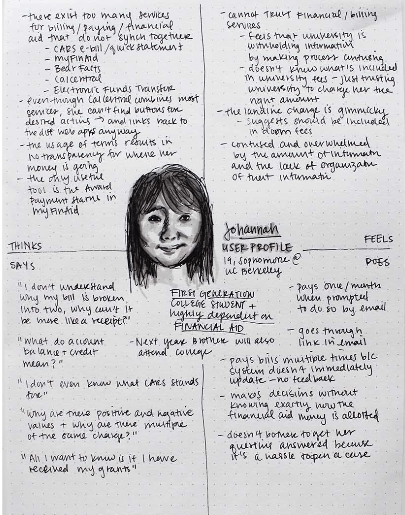 - there exist too many services
for billing/paying/financial
aid that do not synch together
- CARS e-bill/quickstatement
- myFinAid
- Bear Facts
- Calcentral
- Electronic Funds Transfer
- even though CalCentral combines most
services, she can't find buttons for
desired actions → and links back to
the diff web apps anyway
- the usage of terms results in
no transparency for where her
money is going
- the only useful
tool is the award
payment status in
myFinAid
THINKS
- cannot trust financial/billing
services
- feels that university is
withholding information
by making process confusing
- doesn't know what is included
in university fees - just trusting
university to charge her the
right amount
- the landline charge is gimmicky
- suggests should be included
in room fees
- confused and overwhelmed
by the amount of information
and the lack of organization
of their information
FEELS
Johannah
USER PROFILE
19, sophomore @
UC Berkeley
FIRST GENERATION
COLLEGE STUDENT +
highly dependent on
FINANCIAL AID
- Next year brother will also
attend college
SAYS
"I don't understand
why my bill is broken
into two, why can't it
be more like a receipt?"
"What do account
balance + credit
mean?"
"I don't even know what CARS stands
for"
"Why are there positive and negative
values + why are there multiple
of the same charge?"
"All I want to know is if I have
received my grants"
DOES
- pays once/month
when prompted
to do so by email
- goes through
link in email
- pays bills multiple times b/c
system doesn't immediately
update - no feedback
- makes decisions without
knowing exactly how the
financial aid money is allotted
- doesn't bother to get her
questions answered because
it's a hassle to open a case